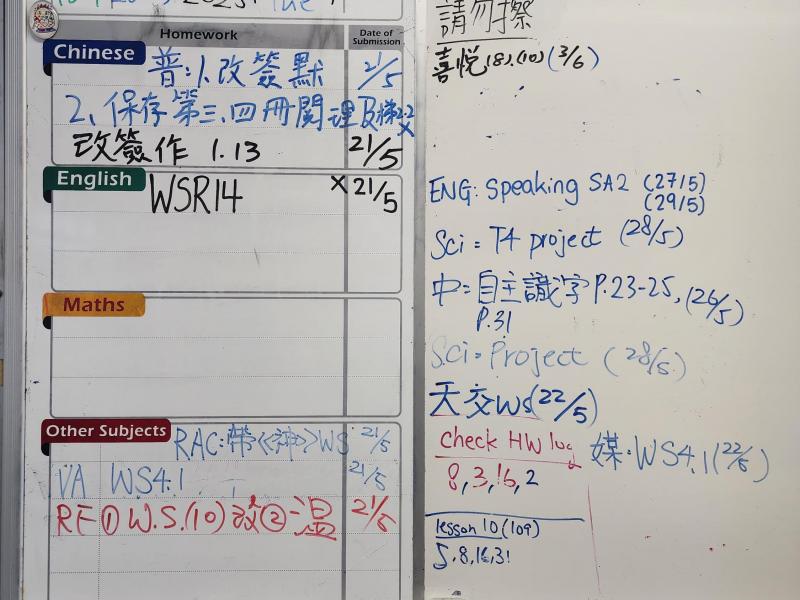 Homework
Date of Submission
Chinese
普:1.改簽默 21/5
2、保存第三、四冊閱理及
改簽作 1.13 21/5
English
WSR14 x 21/5
Maths
Other Subjects
RAC:帶《神》WS 21/5
VA WS4.1 21/5
RE ① W.S.(10) 改 ② 溫 21/5
請勿擦
喜悅(8).(10) (3/6)
ENG: Speaking SA2 (27/5)
(29/5)
Sci = T4 project (28/5)
中=自主識字 P.23-25, (26/5)
P.31
Sci = Project (28/5)
天交WS(22/5)
check HW log
8,3,16,2
媒·WS4.1(22/5)
lesson 10 (109)
5.8,16,31